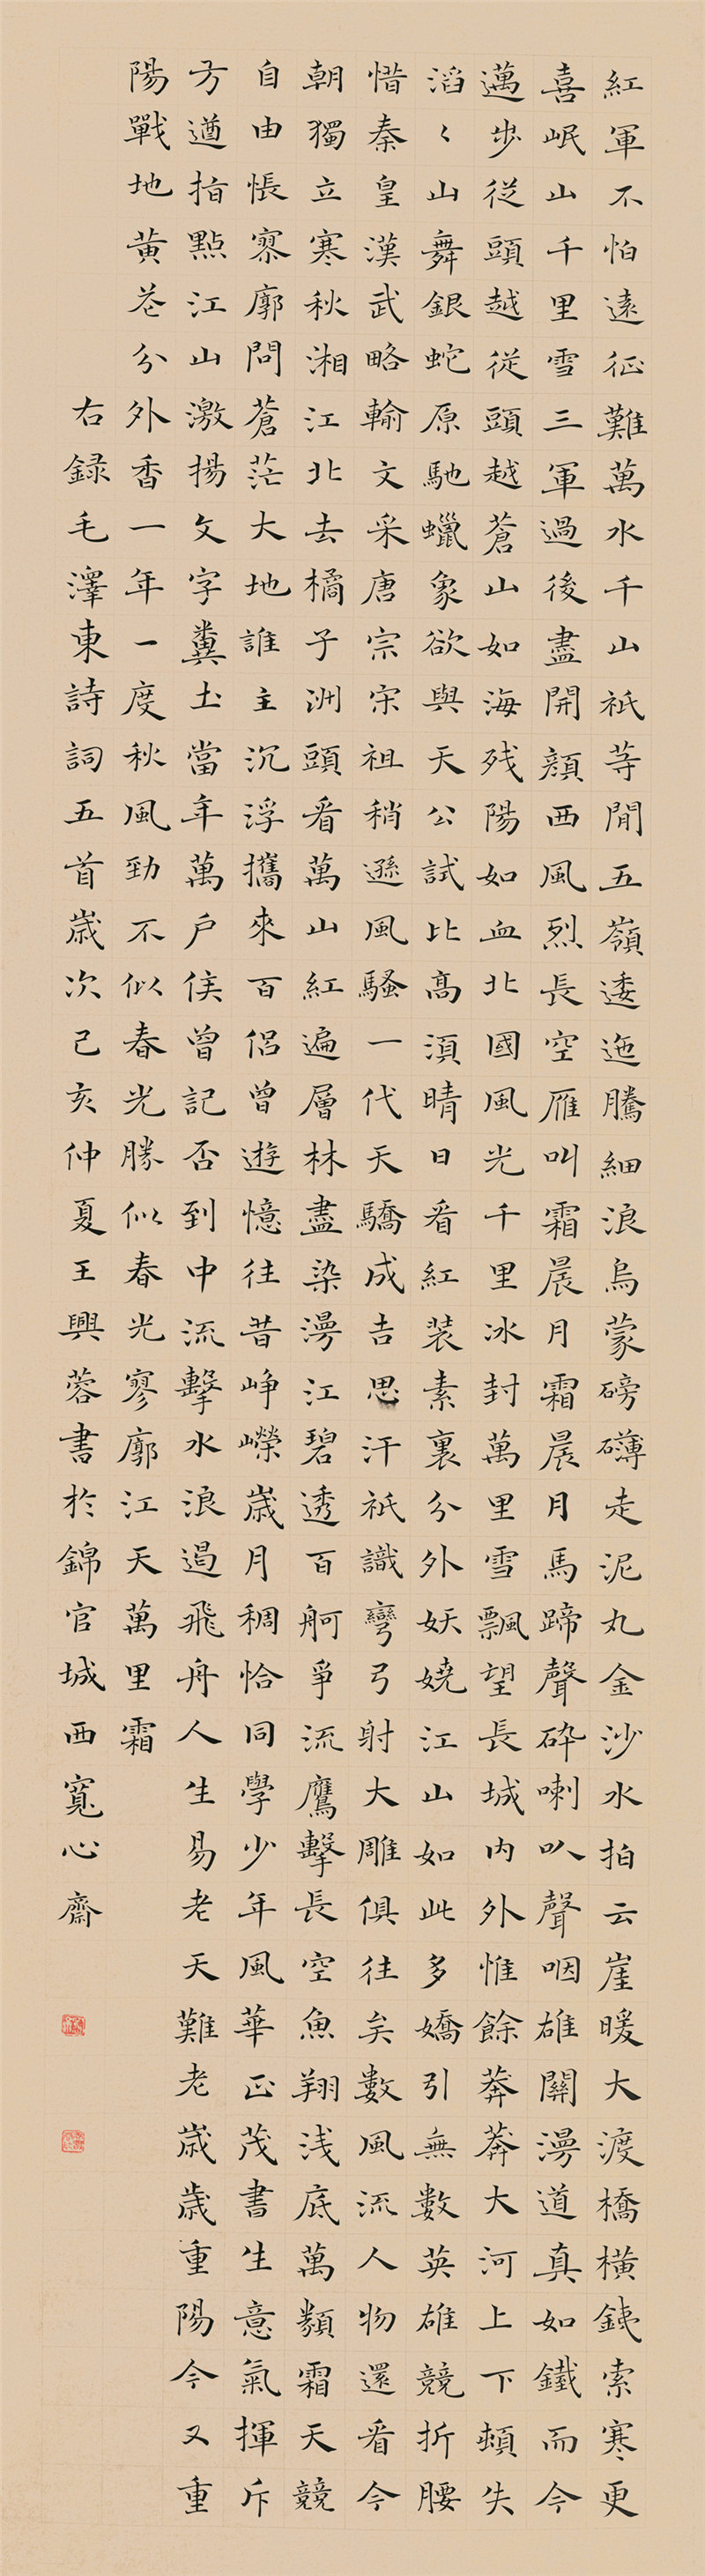 紅軍不怕遠征難萬水千山衹等閒五嶺逶迤騰細浪烏蒙磅礴走泥丸金沙水拍云崖暖大渡橋橫鐵索寒更
喜岷山千里雪三軍過後盡開顏西風烈長空雁叫霜晨月霜晨月馬蹄聲碎喇叭聲咽雄關漫道真如鐵而今
邁步從頭越從頭越蒼山如海殘陽如血北國風光千里冰封萬里雪飄望長城內外惟餘莽莽大河上下頓失
滔〻山舞銀蛇原馳蠟象欲與天公試比高須晴日看紅裝素裹分外妖嬈江山如此多嬌引無數英雄競折腰
惜秦皇漢武略輸文采唐宗宋祖稍遜風騷一代天驕成吉思汗衹識彎弓射大雕俱往矣數風流人物還看今
朝獨立寒秋湘江北去橘子洲頭看萬山紅遍層林盡染漫江碧透百舸爭流鷹擊長空魚翔淺底萬類霜天競
自由悵寥廓問蒼茫大地誰主沉浮攜來百侶曾遊憶往昔崢嶸歲月稠恰同學少年風華正茂書生意氣揮斥
方遒指點江山激揚文字糞土當年萬戶侯曾記否到中流擊水浪遏飛舟人生易老天難老歲歲重陽今又重
陽戰地黃花分外香一年一度秋風勁不似春光勝似春光寥廓江天萬里霜
右録毛澤東詩詞五首歲次己亥仲夏王興蓉書於錦官城西寬心齋